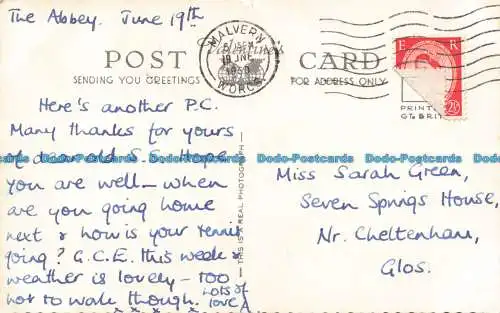 The Abbey. June 19th
POST CARD
SENDING YOU GREETINGS
FOR ADDRESS ONLY
MALVERN
19 JNE
WORCS
E R
PRINT
GT. BRIT
Here's another P.C.
Many thanks for yours
of dear old S.S. Hope
you are well – when
are you going home
next & how is your tennis
going? G.C.E. this week &
weather is lovely – too
hot to walk though.
Lots of
love A
THIS IS A REAL PHOTOGRAPH
Miss Sarah Green,
Seven Springs House,
Nr. Cheltenham,
Glos.
Dodo-Postcards Dodo-Postcards Dodo-Postcards Dodo-Postcards Dodo-Postcards